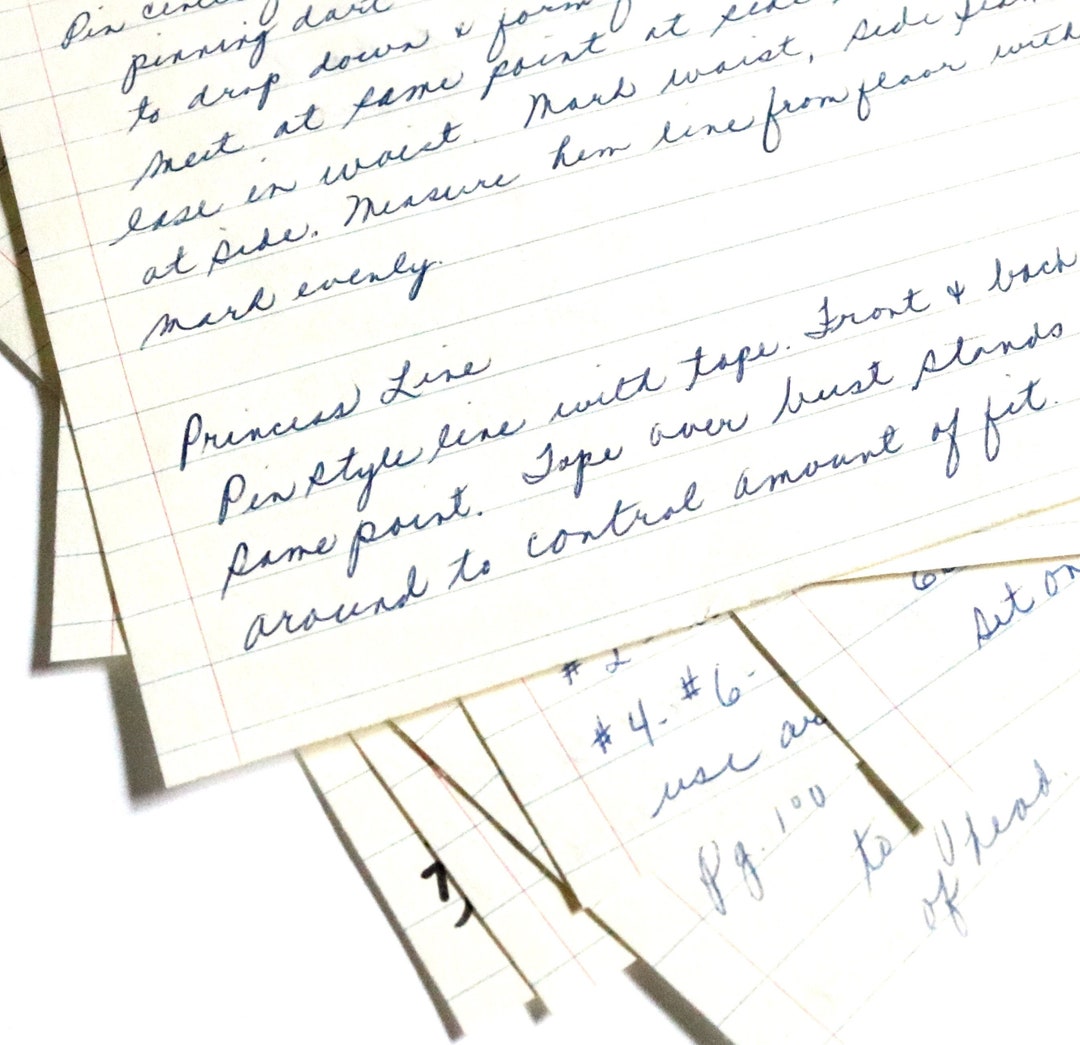 Pin center
pinning dart
to drop down & form
meet at same point at side
ease in waist. Mark waist, side seam
at side. Measure hem line from floor with
mark evenly.
Princess Line
Pin style line with tape. Front & back
same point. Tape over bust stands
around to control amount of fit.
# 2
#4-#6-
use
Pg. 100
set on
to head.
of